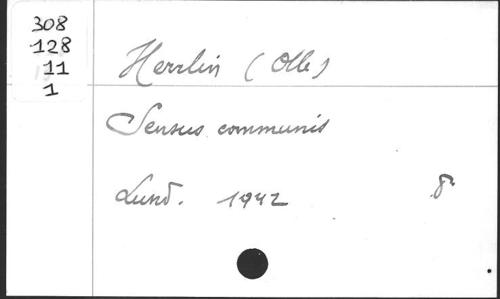 308
128
11
1
Herrlin (Olle)
Sensus communis
Lund. 1942 8°
*